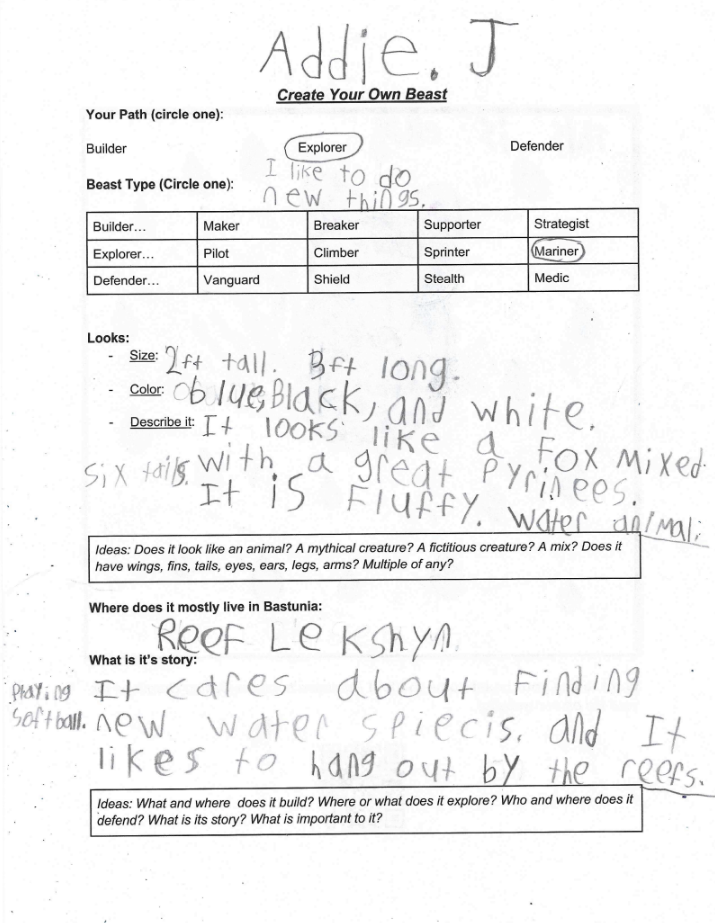 Addie. J
Create Your Own Beast
Your Path (circle one):
Builder Explorer Defender
I like to do
Beast Type (Circle one):
new things.
Builder… Maker Breaker Supporter Strategist
Explorer… Pilot Climber Sprinter Mariner
Defender… Vanguard Shield Stealth Medic
Looks:
- Size: 2ft tall. 3ft long.
- Color: blue, Black, and white.
- Describe it: It looks like a Fox mixed
six tails. with a great Pyrinees.
It is Fluffy. Water animal.
Ideas: Does it look like an animal? A mythical creature? A fictitious creature? A mix? Does it
have wings, fins, tails, eyes, ears, legs, arms? Multiple of any?
Where does it mostly live in Bastunia:
REEF Le Kshyn
What is it's story:
Playing It cares about Finding
softball. new water spiecis. and It
likes to hang out by the reefs.
Ideas: What and where does it build? Where or what does it explore? Who and where does it
defend? What is its story? What is important to it?